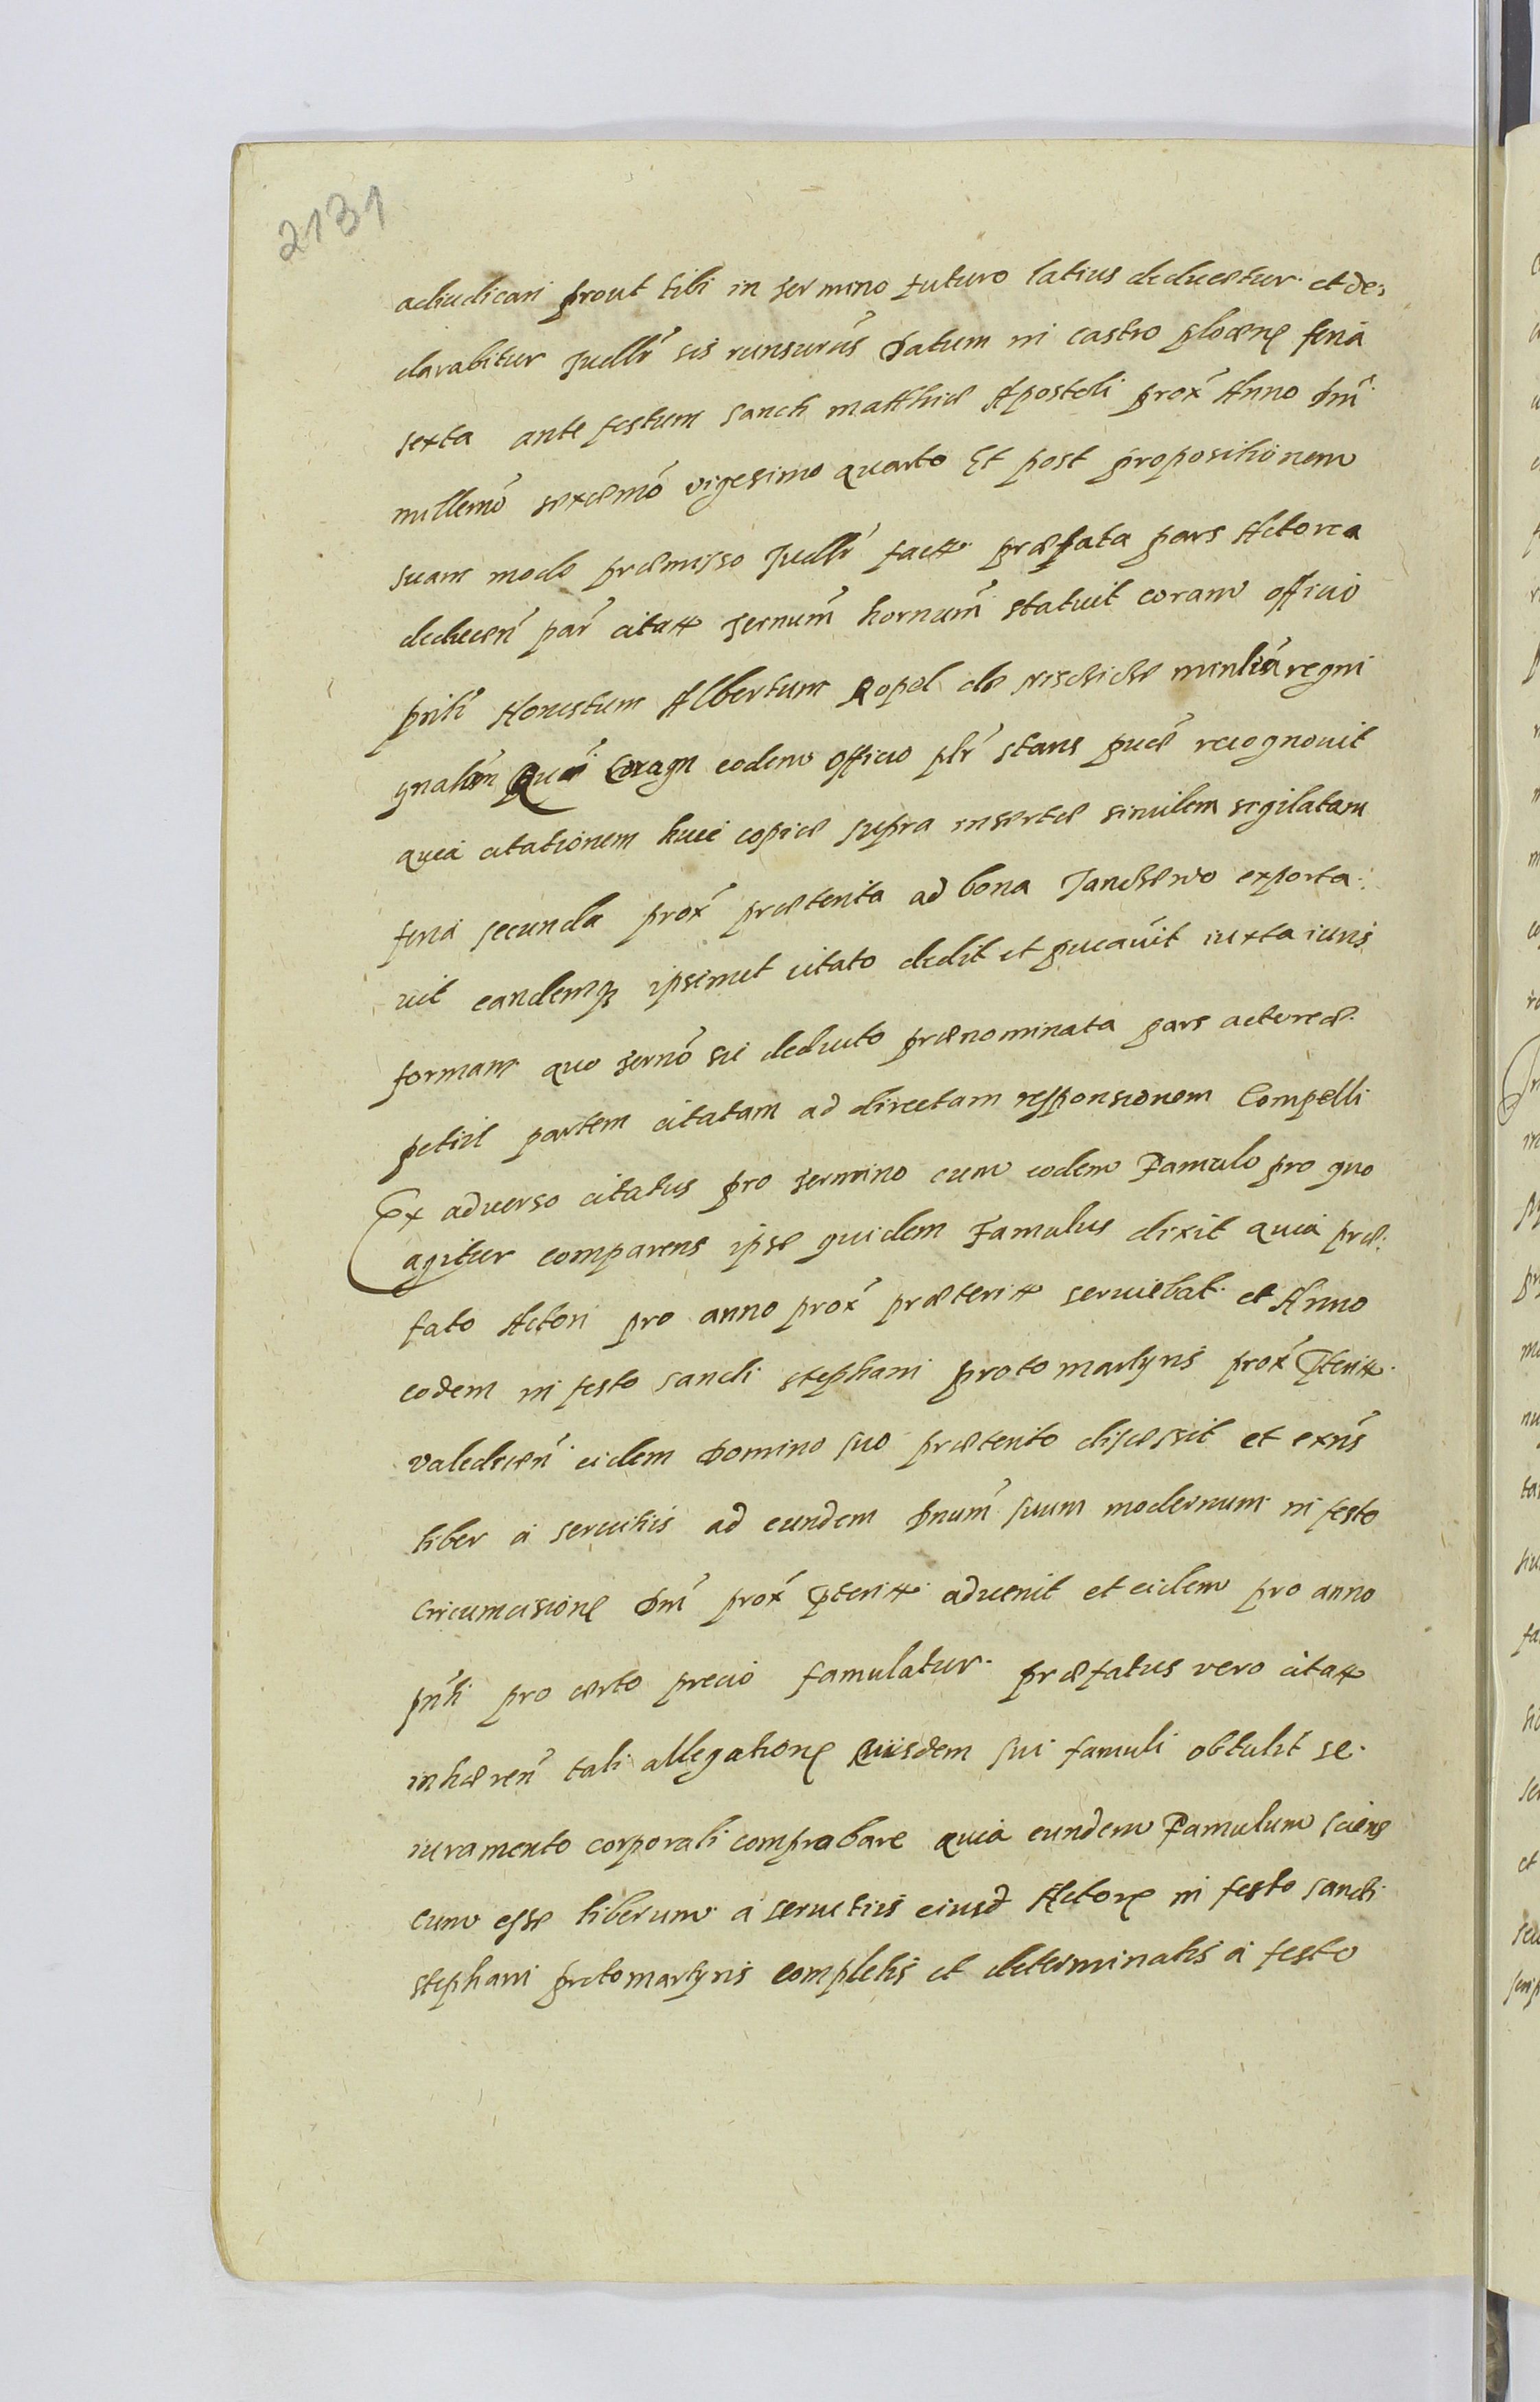 2131
adiudicari prout tibi in termino futuro latius deducetur et de,
clarabitur Judlr sis Datum in castro plocen feria
sexta ante festum sancti matthiæ Apostoli prox Anno Dni
millemo sexcemo vigesimo quarto Et post propositionem
suam modo præmisso Judlr fact præfata pars Actorea
deducen par citat ternum hornum statuit coram officio
pnti Honestum Albertum Ropel de ministeriā regni
gnalem Qui Coram eodem officio plr stans puce recognouit
quia citationem huic copiæ supra insertæ similem sigilatam
feria secunda prox præterita ad bona exporta-
uit eandemq ipsimet citato dedit et pucauit iuxta iuris
formam quo terno sic deducto prænominata pars actoreæ
petiit partem citatam ad directam responsionem Compelli
Ex aduerso citatus pro termino cum eodem Famulo pro quo
agitur comparens ipse quidem Famulus dixit quia præ-
fato Actori pro anno prox præterit seruiebat et Anno
eodem in festo sancti stephani protomartyris prox pterit
valedicen eidem Domino suo præterito discessit et exns
liber a seruitiis ad eundem Dnum suum modernum in festo
Circumcisione Dni prox pterit aduenit et eidem pro anno
pnti pro certo precio famulatur præfatus vero citat
inhæren tali allegatione eiusdem sui famuli obtulit se
iuramento corporali comprobare quia eundem Famulum sciens
eum esse liberum a seruitiis eiusd Actore in festo sancti
stephani protomartyris completis et determinatis a festo